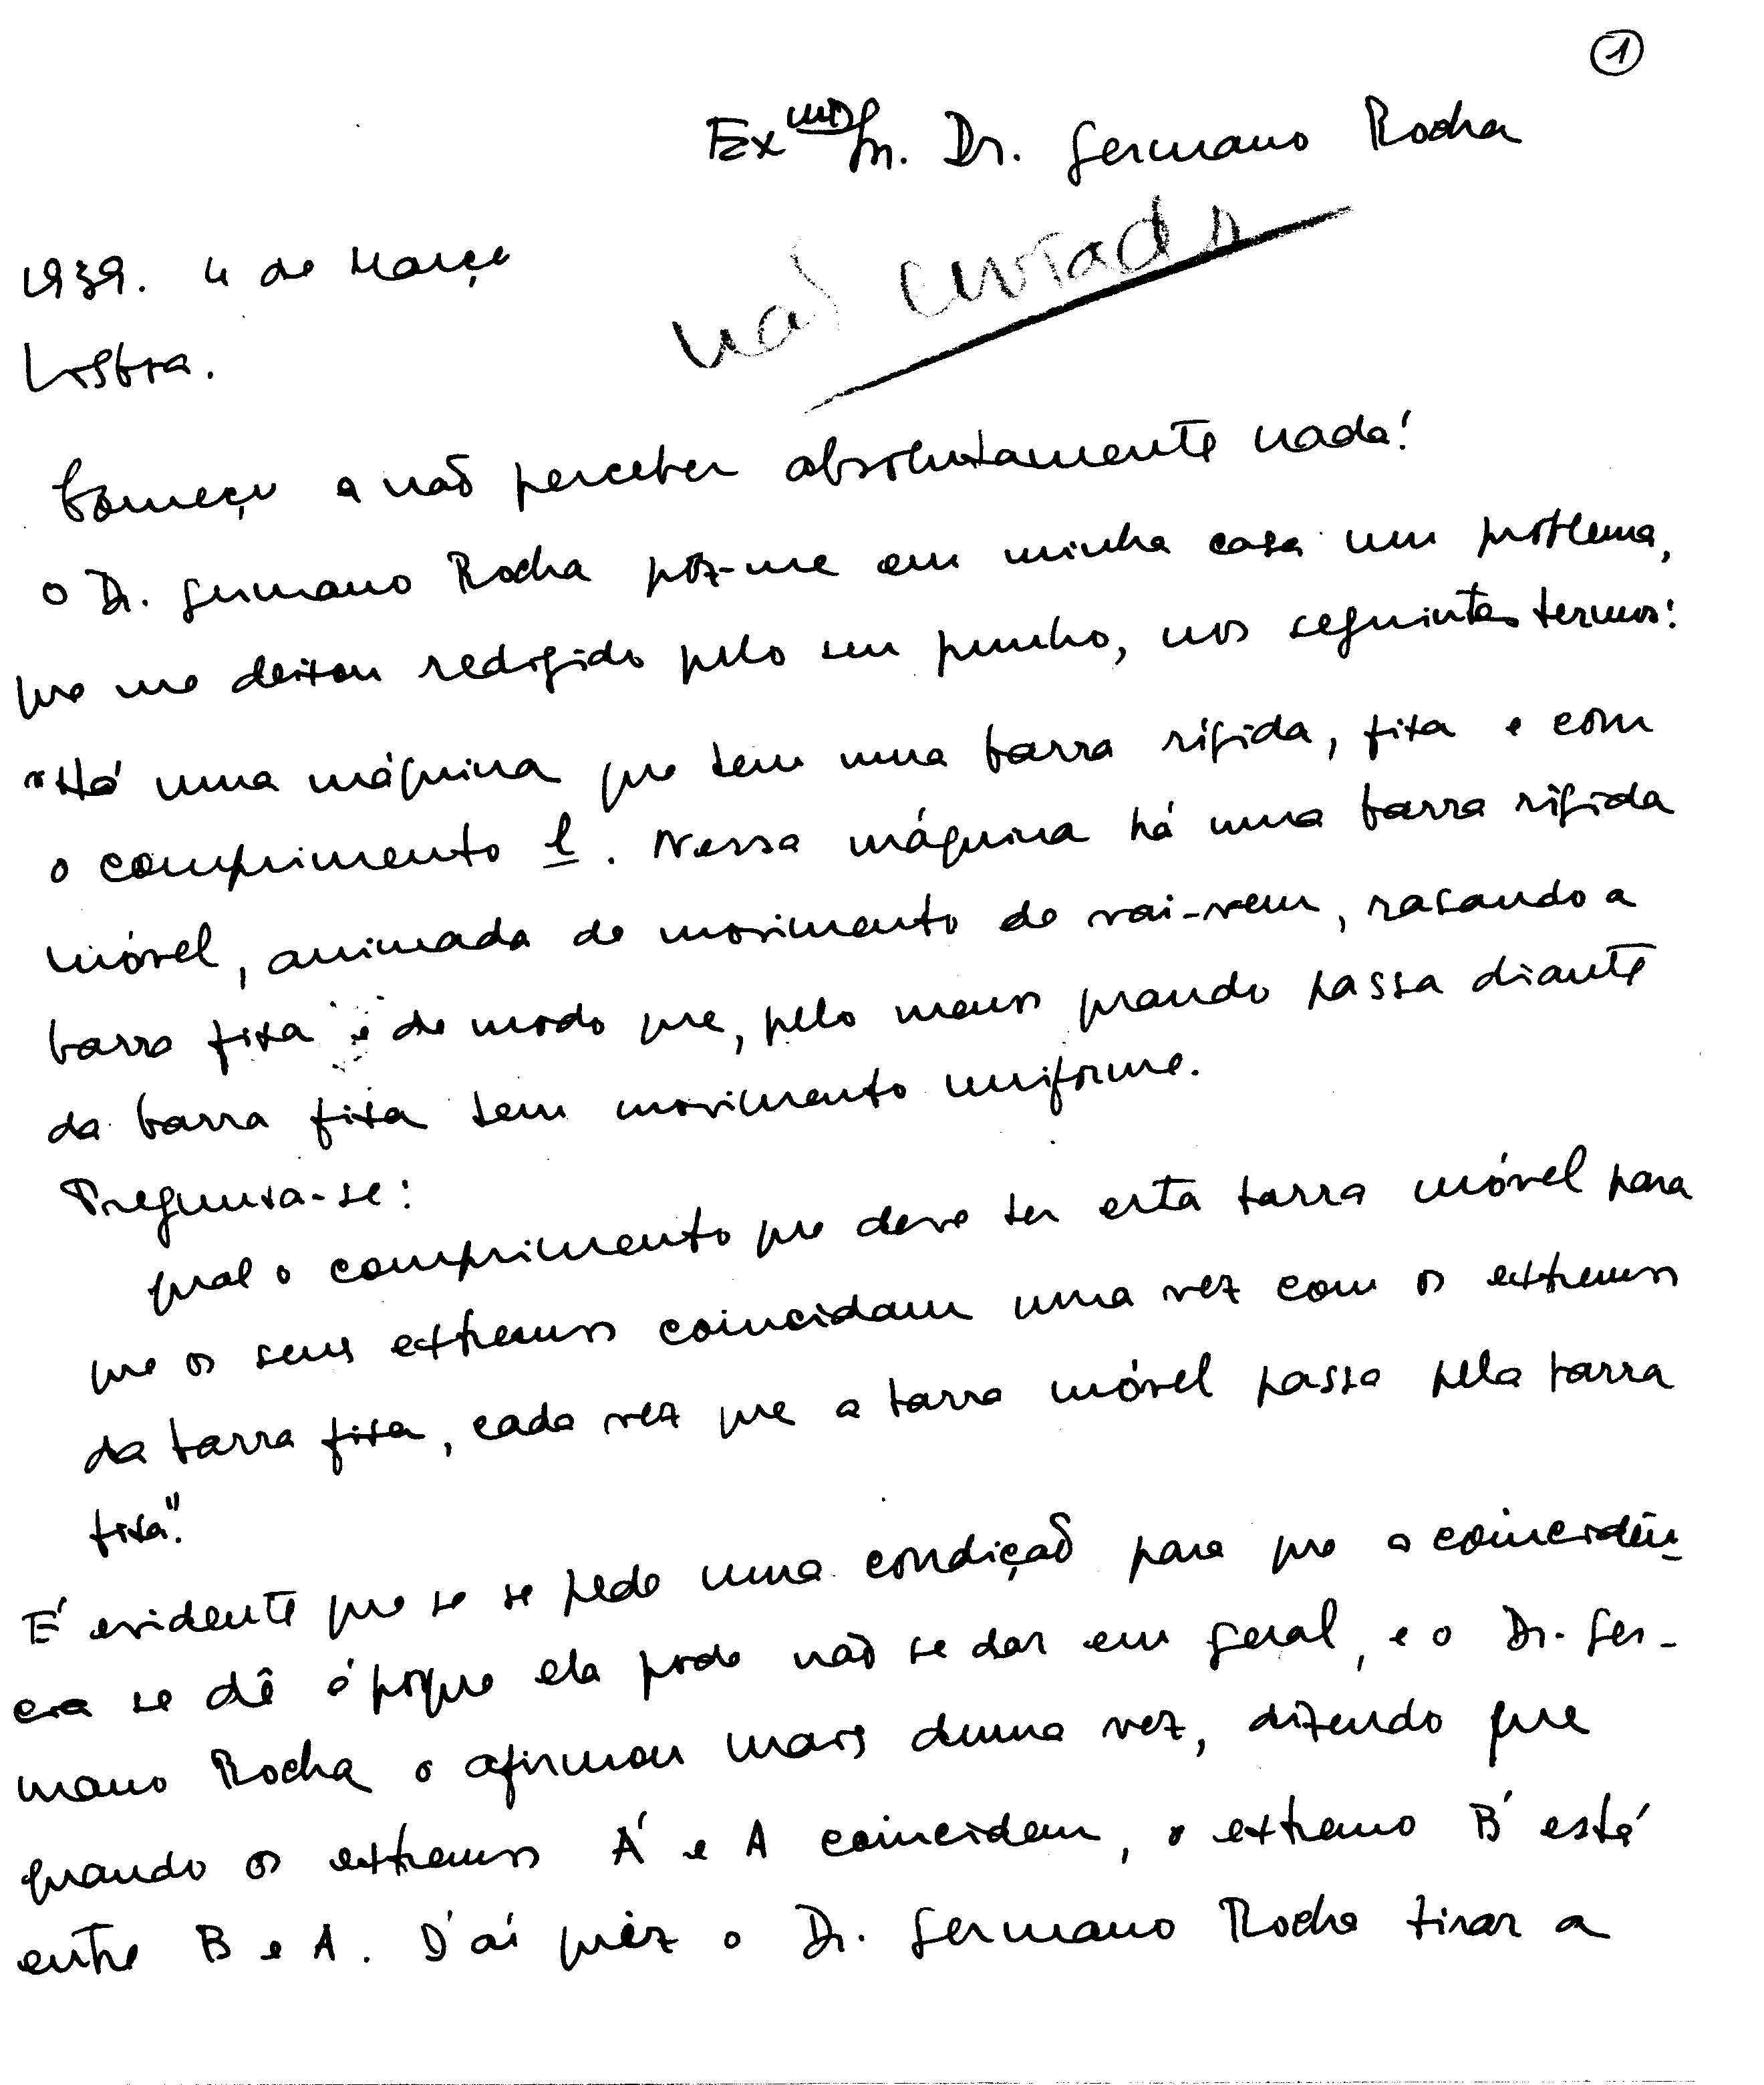 1
Ex.mo Sr. Dr. Germano Rocha
não enviada
1939. 4 de Março
Lisboa.
Começo a não perceber absolutamente nada!
O Dr. Germano Rocha pôz-me em minha casa um problema,
que me deixou redigido pelo seu punho, nos seguintes termos:
"Há uma máquina que tem uma barra rígida, fixa e com
o comprimento l. Nessa máquina há uma barra rígida
móvel, animada de movimento de vai-vem, rasando a
barra fixa e de modo que, pelo menos quando passa diante
da barra fixa tem movimento uniforme.
Pregunta-se:
qual o comprimento que deve ter esta barra móvel para
que os seus extremos coincidam uma vez com os extremos
da barra fixa, cada vez que a barra móvel passa pela barra
fixa".
É evidente que se se pede uma condição para que a coincidên-
cia se dê é porque ela pode não se dar em geral, e o Dr. Ger-
mano Rocha o afirmou mais duma vez, dizendo que
quando os extremos A' e A coincidem, o extremo B' está
entre B e A. D'aí quiz o Dr. Germano Rocha tirar a